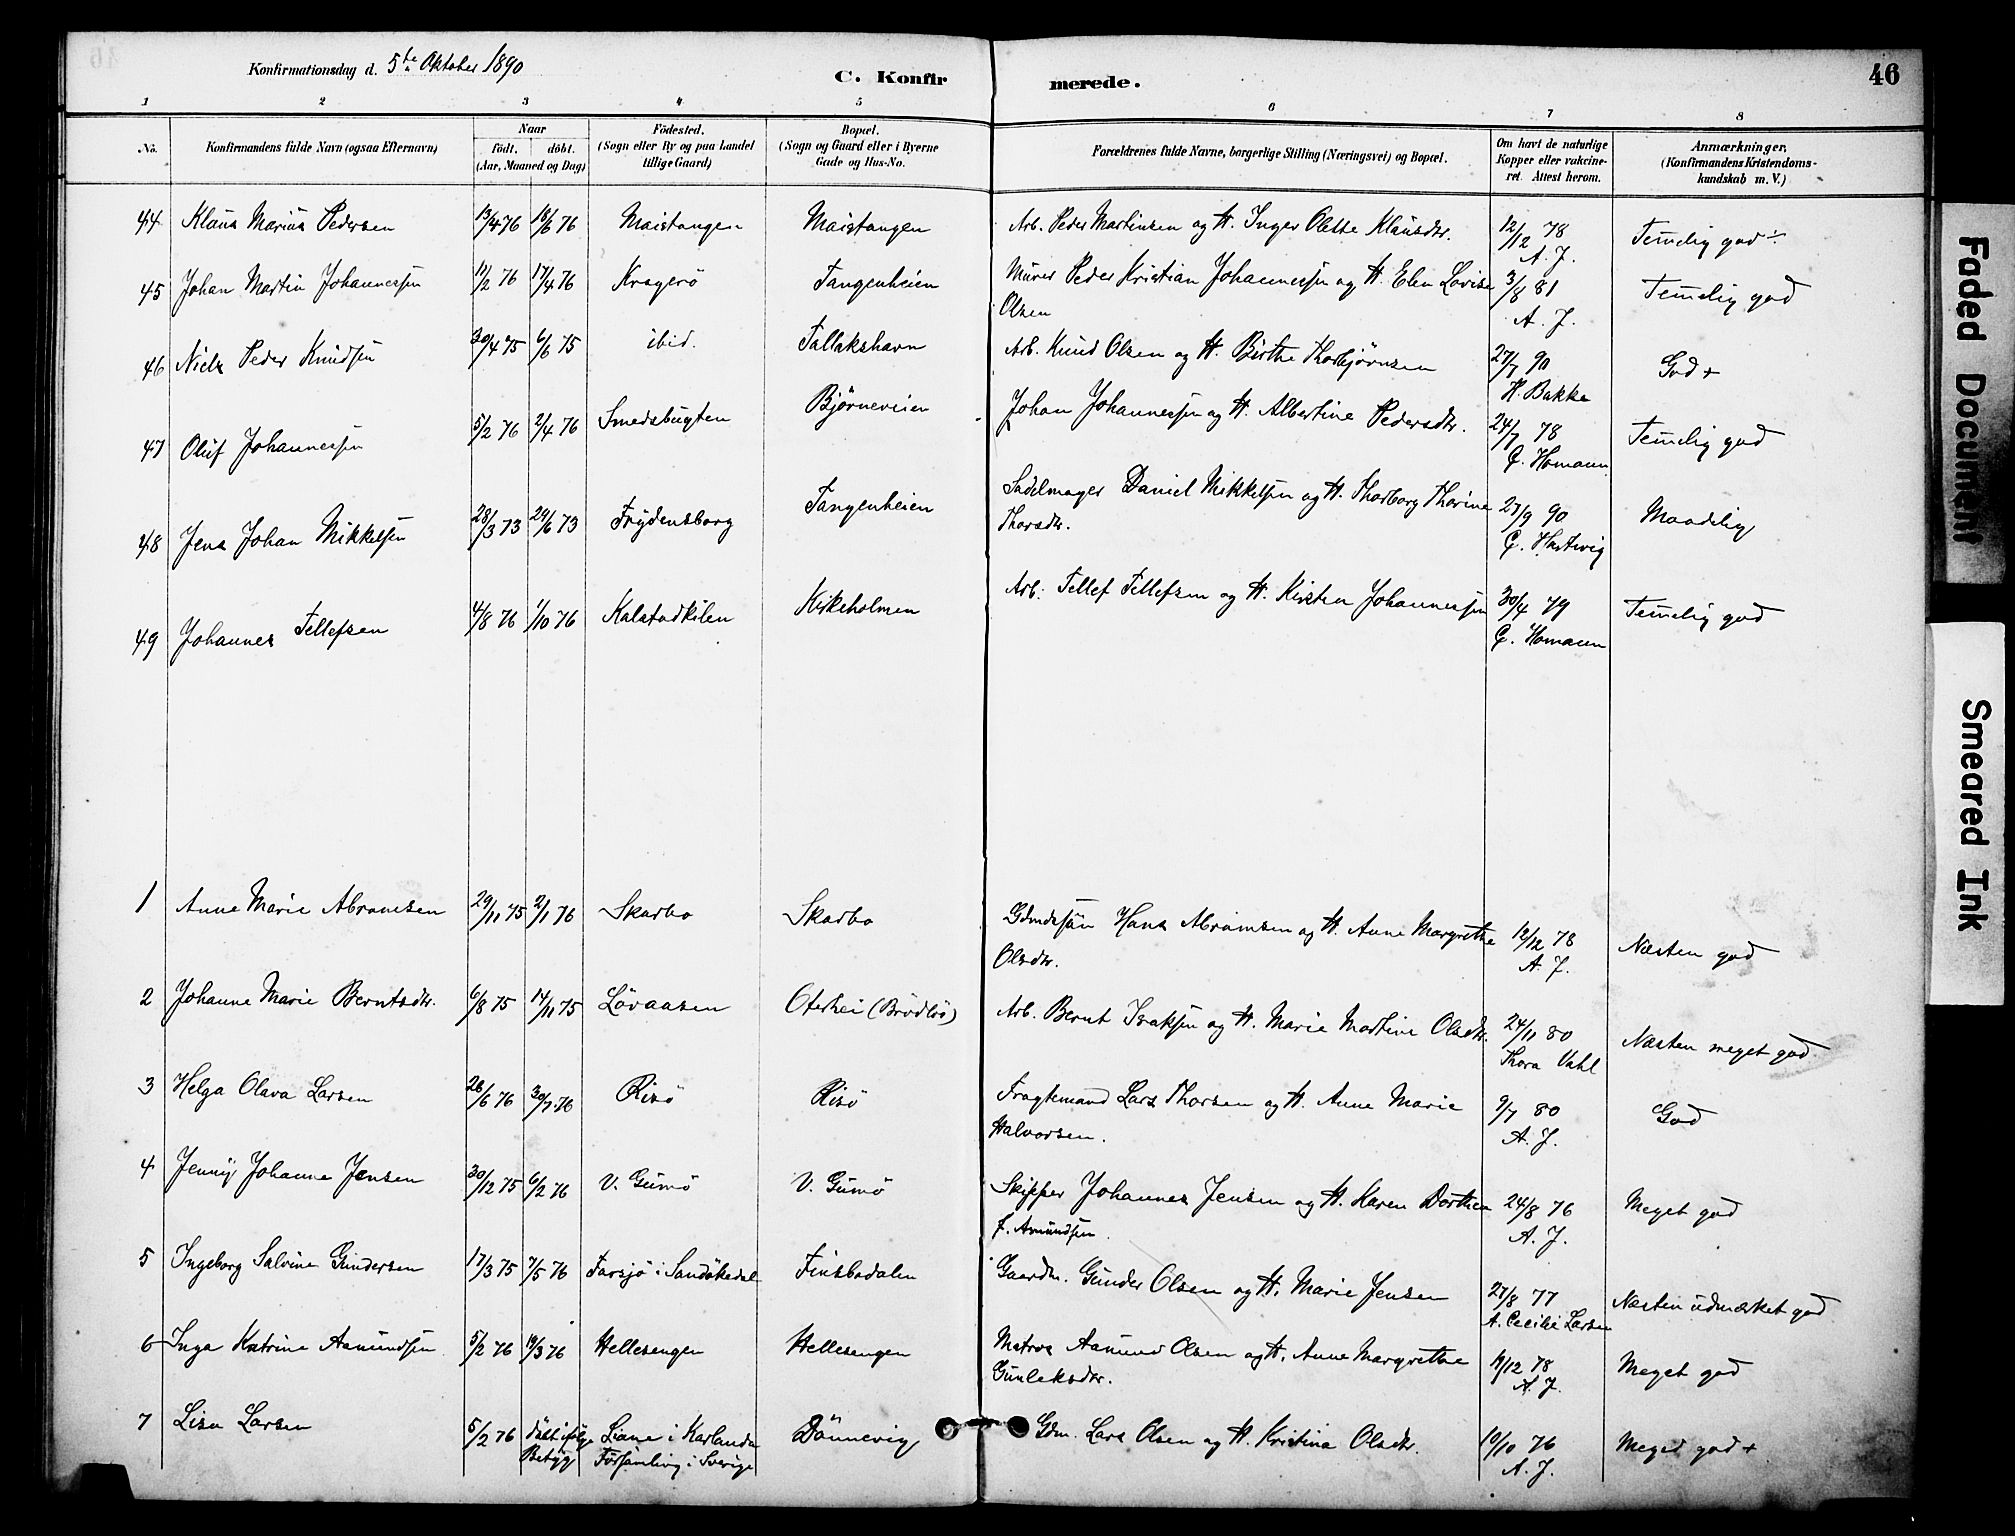 Konfirmationsdag d. 5te Oktober 1890
C. Konfirmerede.
46
1 2 3 4 5 6 7 8
No.
Konfirmandens fulde Navn (ogsaa Efternavn)
Naar
födt. döbt.
(Aar, Maaned og Dag)
Födested.
(Sogn eller By og paa Landet
tillige Gaard)
Bopæl.
(Sogn og Gaard eller i Byerne
Gade og Hus-No.
Forældrenes fulde Navne, borgerlige Stilling (Næringsvei) og Bopæl.
Om havt de naturlige
Kopper eller vakcine-
ret. Attest herom.
Anmærkninger.
(Konfirmandens Kristendoms-
kundskab m. V.)
44 Klaus Marius Pedersen 13/4 76 18/6 76 Maistangen Maistangen Arb. Peder Martinsen og H. Inger Olette Klausdtr. 12/12 78 Temelig god ÷
A. J.
45 Johan Martin Johannessen 11/2 76 17/4 76 Kragerö Tangenheien Murer Peder Kristian Johannessen og H. Elen Lovise 3/8 81 Temelig god
Olsen A. J.
46 Niels Peder Knudsen 30/4 75 6/6 75 ibid. Tallakshavn Arb. Knud Olsen og H. Birthe Thorbjörnsen 27/7 90 God +
H. Bakke
47 Oluf Johannessen 5/2 76 2/4 76 Smedsbugten Björneveien Johan Johannessen og H. Albertine Pedersdtr. 24/7 78 Temelig god
G. Homann
48 Jens Johan Mikkelsen 28/3 73 24/6 73 Frydensborg Tangenheien Sadelmager Daniel Mikkelsen og H. Thorborg Thorine 27/9 90 Maadelig
Thorsdtr. G. Hartvig
49 Johannes Tellefsen 4/8 76 1/10 76 Kalstadkilen Kirkeholmen Arb. Tellef Tellefsen og H. Kirsten Johannessen 30/4 79 Temelig god
G. Homann
1 Anne Marie Abramsen 29/11 75 2/1 76 Skarbo Skarbo Gdmdssön Hans Abramsen og H. Anne Margrethe 12/12 78 Næsten god
Olsdtr. A. J.
2 Johanne Marie Berntsdtr. 6/8 75 14/11 75 Lövaasen Oterhei (Brödlös) Arb. Bernt Isaksen og H. Marie Martine Olsdtr. 24/11 80 Næsten meget god
Thora Vahl
3 Helga Olava Larsen 26/6 76 30/7 76 Risö Risö Fragtemand Lars Thorsen og H. Anne Marie 9/7 80 God
Halvorsen. A. J.
4 Jenny Johanne Jensen 30/12 75 6/2 76 V. Gumö V. Gumö Skipper Johannes Jensen og H. Karen Dorthea 24/8 76 Meget god
f. Amundsen. A. J.
5 Ingeborg Salvine Gundersen 17/3 75 7/5 76 Farsjö i Sandökedal Finsbodalen Gaardm. Gunder Olsen og H. Marie Jensen 27/8 77 Næsten udmærket god
A. Cecilie Larsen
6 Inga Katrine Aamundsen 5/2 76 19/3 76 Hellesengen Hellesengen Matros Aamund Olsen og H. Anne Margrethe 11/12 78 Meget god
Gunleksdtr. A. J.
7 Lisa Larsen 5/2 76 döbt ifölge Liane i Karlanda Dönnevig Gdm. Lars Olsen og H. Kristina Olsdtr. 10/10 76 Meget god +
Betyg Församling i Sverige A. J.
Faded Document
Smeared Ink